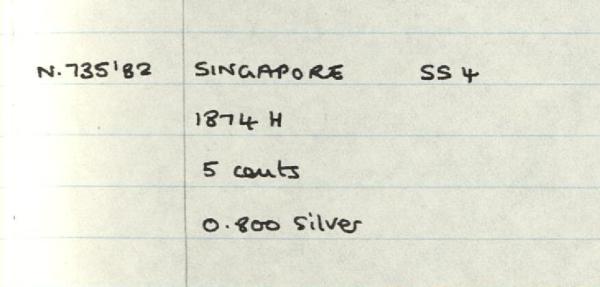 N.735'82 SINGAPORE SS 4
1874 H
5 cents
0.800 Silver